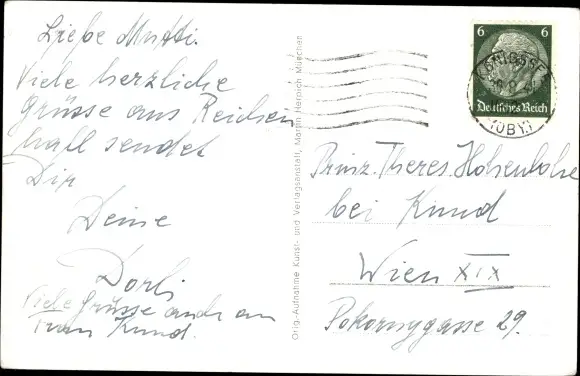 Liebe Mutti.
Viele herzliche
Grüsse aus Reichen
hall sendet
Dir
Deine
Dorli
Viele Grüsse auch an
Frau Kund.
Orig.-Aufnahme Kunst- und Verlagsanstalt, Martin Herpich München
6 6
Deutsches Reich
(OBY.)
Prinz. Theres Hohenlohe
bei Kund
Wien XIX
Pokornygasse 29.